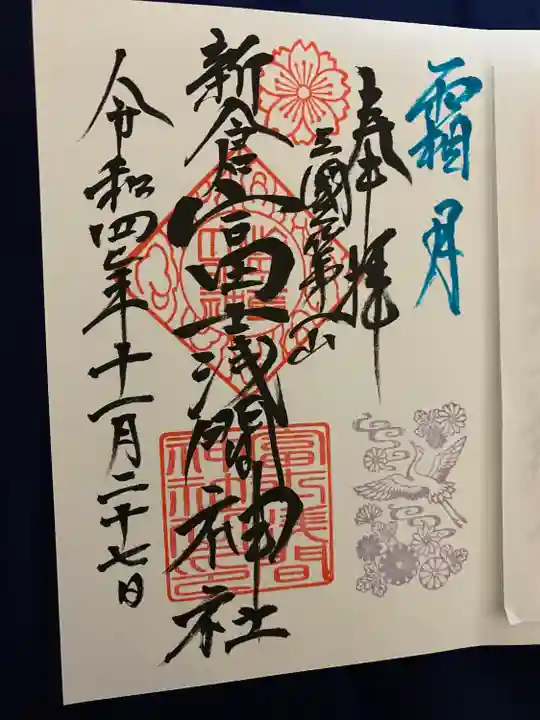 霜月
奉拝
三國第一山
新倉富士浅間神社
令和四年十一月二十七日
冨士浅間